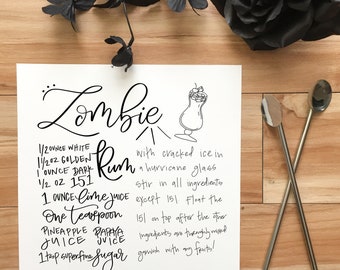 Zombie
1/2 OUNCE WHITE
1 1/2 OZ GOLDEN
1 OUNCE DARK
1/2 OZ 151
Rum
1 OUNCE lime juice
one teaspoon
PINEAPPLE PAPAYA
JUICE JUICE
1 tsp superfine sugar
with cracked ice in
a hurricane glass
stir in all ingredients
except 151. Float the
151 on top after the other
ingredients are thoroughly mixed
garnish with any fruits!